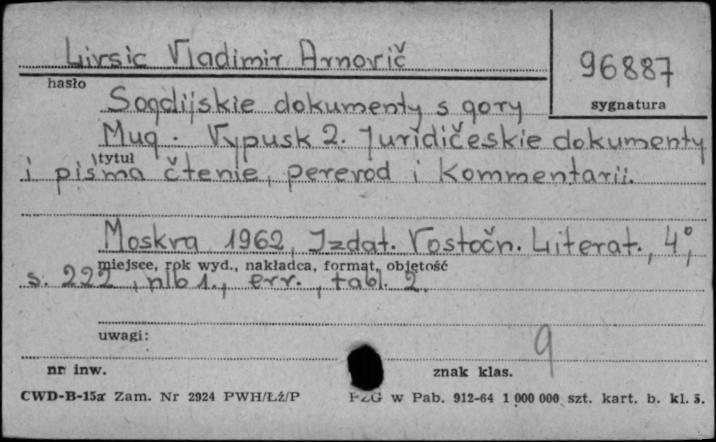 Livsic Vladimir Arnovič
96887
hasło
sygnatura
Sogdijskie dokumenty s gory
Mug. Vypusk 2. Juridičeskie dokumenty
tytuł
i pis'ma čtenie, perevod i kommentarii.
Moskva 1962, Izdat. Vostočn. Literat., 4°,
miejsce, rok wyd., nakładca, format, objętość
s. 222, nlb 1., err., tabl. 2.
uwagi:
9
nr inw.
znak klas.
CWD-B-15a Zam. Nr 2924 PWH/Łź/P
PZG w Pab. 912-64 1 000 000 szt. kart. b. kl. 5.